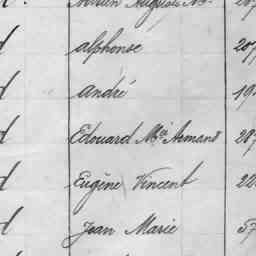 Auguste M.
d alphonse 20
d andré 19
d Edouard Mie Armand 20
d Eugène Vincent 22
d Jean Marie 57